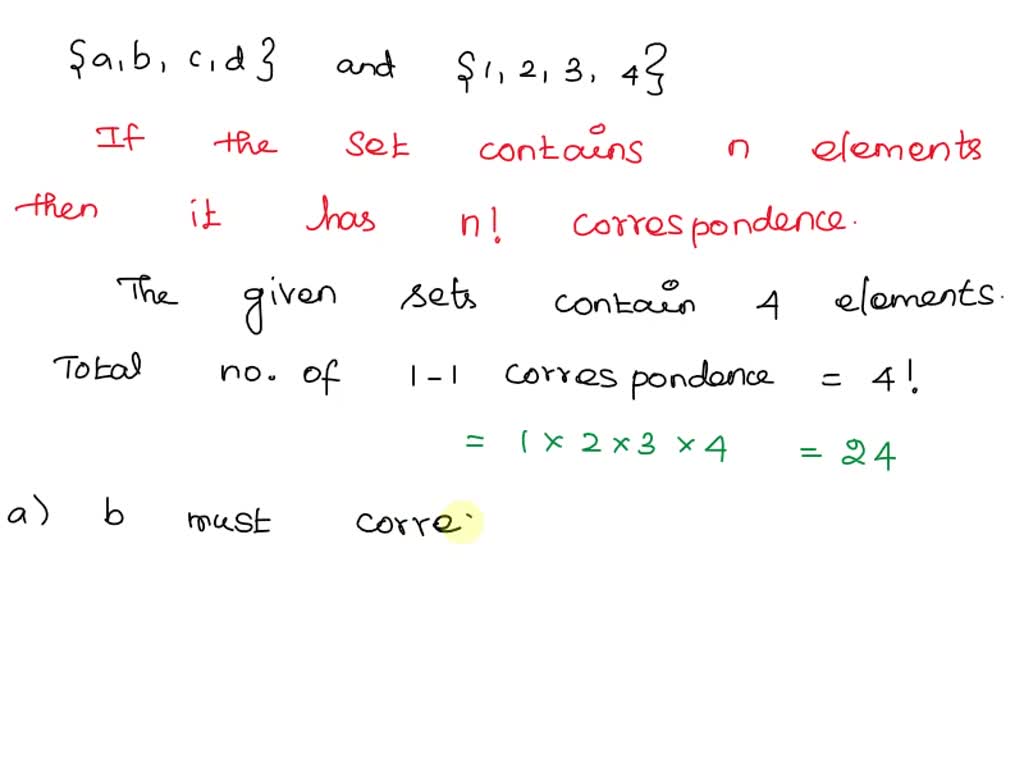 {a, b, c, d} and {1, 2, 3, 4}
If the set contains n elements
then it has n! correspondence.
The given sets contain 4 elements.
Total no. of 1-1 correspondence = 4!
= 1 × 2 × 3 × 4 = 24
a) b must corre